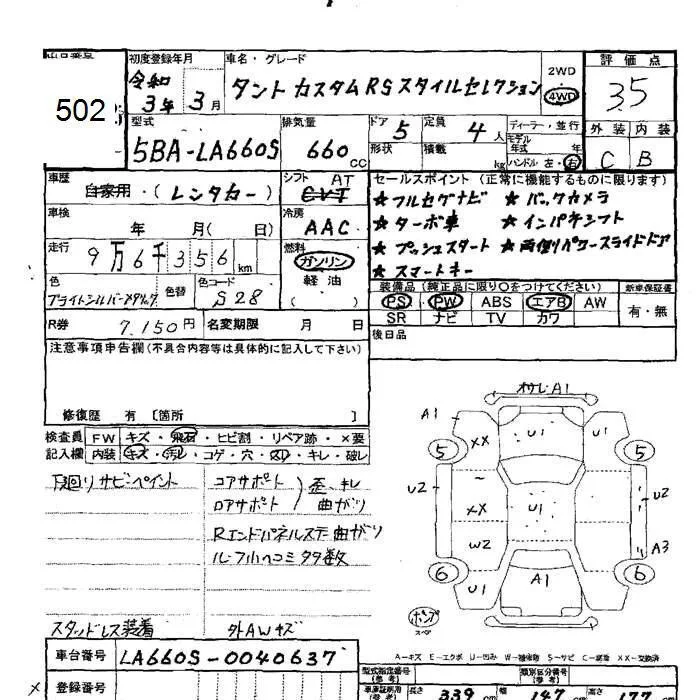 初度登録年月
車名・グレード
評価点
502
令和
3年 3月
タント カスタムRSスタイルセレクション
2WD
4WD
3.5
型式
排気量
ドア 5
定員 4人
ディーラー・並行
モデル
年式 年
外装 内装
5BA-LA660S
660cc
形状
積載 kg
ハンドル 左・右
C B
車歴
自家用・(レンタカー)
シフト AT
CVT
セールスポイント(正常に機能するものに限ります)
★フルセグナビ ★バックカメラ
車検
年 月( 日)
冷房
AAC
★ターボ車 ★インパネシフト
走行
9万6千356km
燃料
ガソリン
軽油
( )
★プッシュスタート ★両側パワースライドドア
★スマートキー
色
ブライトシルバーメタリック
色替
色コード
S28
装備品(純正品に限り○をつけてください)
新車保証書
PS PW ABS エアB AW
有・無
SR ナビ TV カワ
R券 7.150円
名変期限 月 日
後日品
注意事項申告欄(不具合内容等は具体的に記入して下さい)
修復歴 有 [箇所 ]
検査員 FW キズ・飛石・ヒビ割・リペア跡・×要
記入欄 内装 キズ・汚レ・コゲ・穴・凹・キレ・破レ
下回りサビペイント
コアサポート
ロアサポート
歪、キレ
曲がり
Rエンドパネルステー曲がり
ルーフ小ヘコミ多数
スタッドレス装着
外AWキズ
オサレA1
A1
XX
U1
U1
5
5
U2
XX
U1
U2
W2
A3
6
6
U1
A1
ポンプ
スペア
A-キズ E-エクボ U-凹み W-補修跡 S-サビ C-腐食 XX-交換済
車台番号 LA660S-0040637
型式指定番号
(参考)
類別区分番号
(参考)
登録番号
車庫証明用
(参考)
長さ 339cm
幅 147cm
高さ 177cm